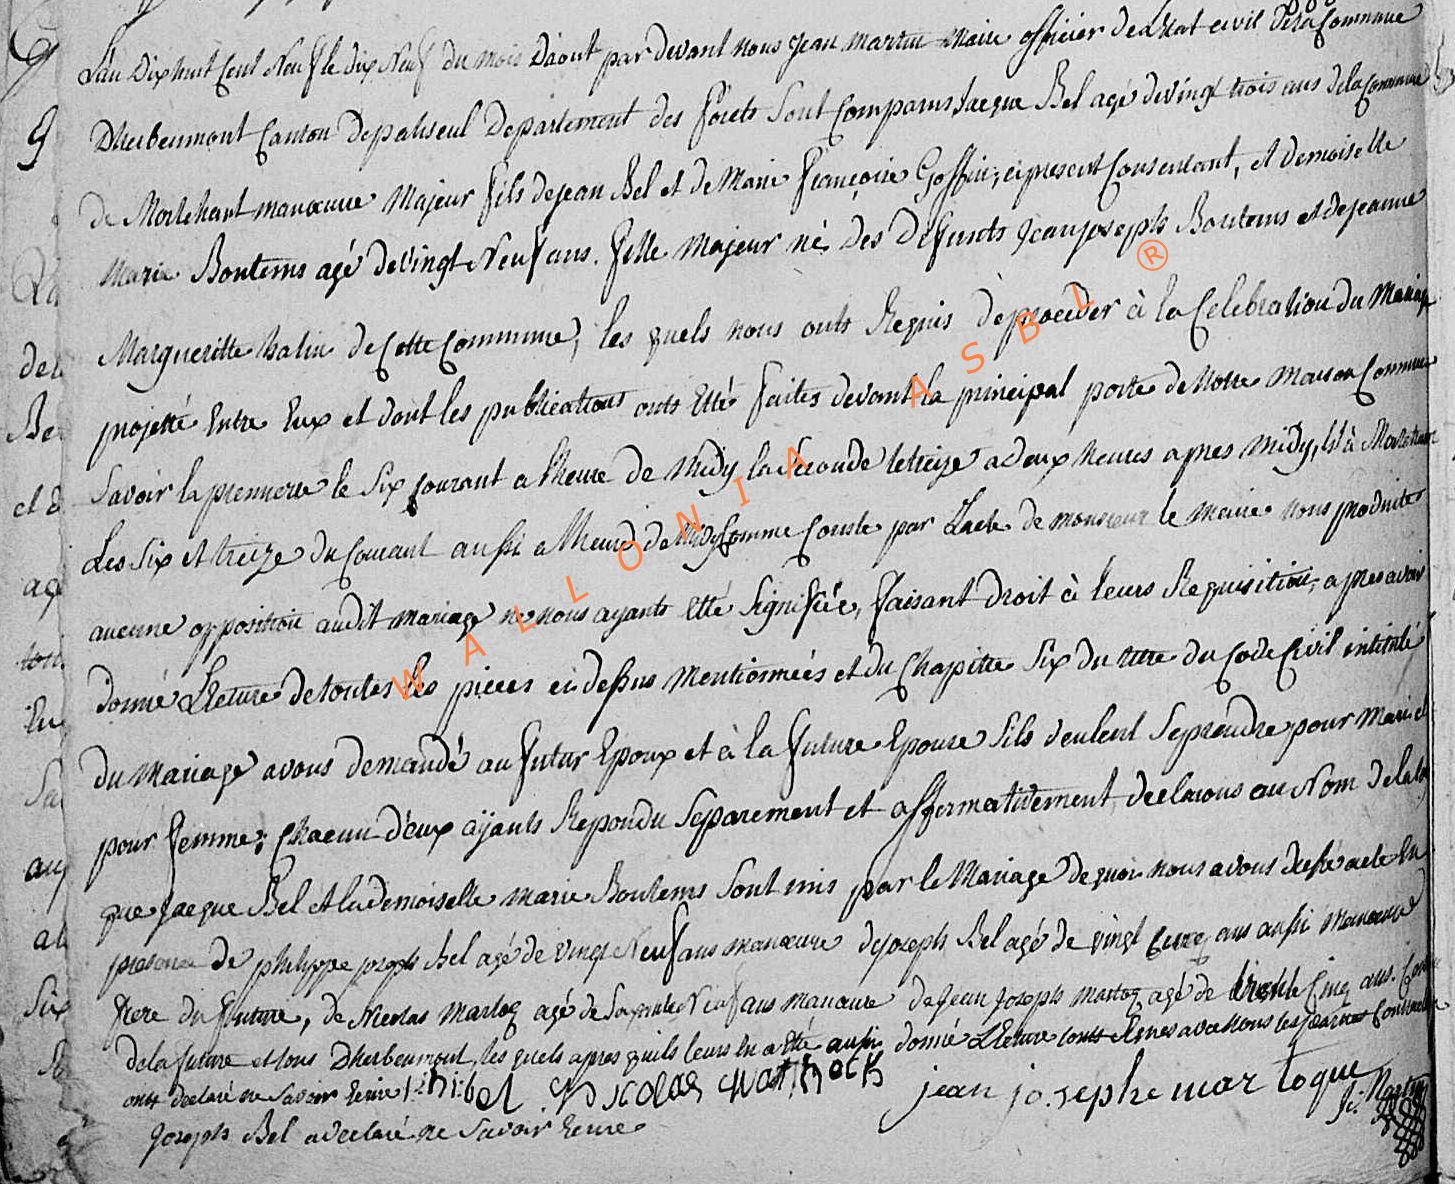 L'an Dix huit Cent Neuf le dix Neuf du mois D'aout par devant nous jean martin Maire officier de L'Etat civil De la Commune
9
D'herbeumont Canton De paliseul Departement des forets Sont Comparus Jacque Bel agé de vingt trois ans de la Commune
de Mortehant manœuvre Majeur fils de jean Bel et de Marie françoise Goffin, ci present Consentant, et demoiselle
Marie Bontems agé de vingt Neuf ans. fille Majeur né des Defunts jean joseph Bontems et de jeanne
Margueritte halin de Cette Commune, les quels nous onts Requis de proceder à la Celebration du Mariage
projetté Entre Eux et dont les publications onts Etté faites devant la principal porte de Notre Maison Commune
Savoir la premiere le Six courant a l'heure de Midy la Seconde le treize a deux heures apres Midy, Et à Mortehant
Les Six et treize du Courant aussi a l'heure de Midy Comme Conste par L'acte de monsieur le maire nous produite
aucune opposition audit mariage ne nous ayants Etté Signifiée, faisant droit à leurs Requisition, apres avoir
donné Lecture de toutes les pieces ci dessus Mentionnées et du Chapitre Six du titre du Code Civil intitulé
du Mariage avons demandé au futur Epoux et à la future Epouse S'ils veulent Se prendre pour Mari et
pour femme; Chacun d'eux ayants Repondu Separement et affirmativement, declarons au Nom de la loi
que Jacque Bel et la demoiselle Marie Bontems Sont unis par le Mariage de quoi nous avons dressé acte En
presence de philippe joseph Bel agé de vingt Neuf ans manœuvre de joseph Bel agé de vingt ans aussi Manœuvre
frere du future, de Nicolas Martoq agé de Soixante Neuf ans manœuvre de Jean Joseph Martoq agé de trente Cinq ans.
de la future et tous D'herbeumont, les quels apres qu'ils leurs En a Etté aussi donné Lecture onts Signes avec Nous les
onts declaré ne Savoir Ecrire p: h: j: bel Nicolas jean josephe martoque J: Martin
Joseph Bel a declaré ne Savoir Ecrire
WALLONIA ASBL ®